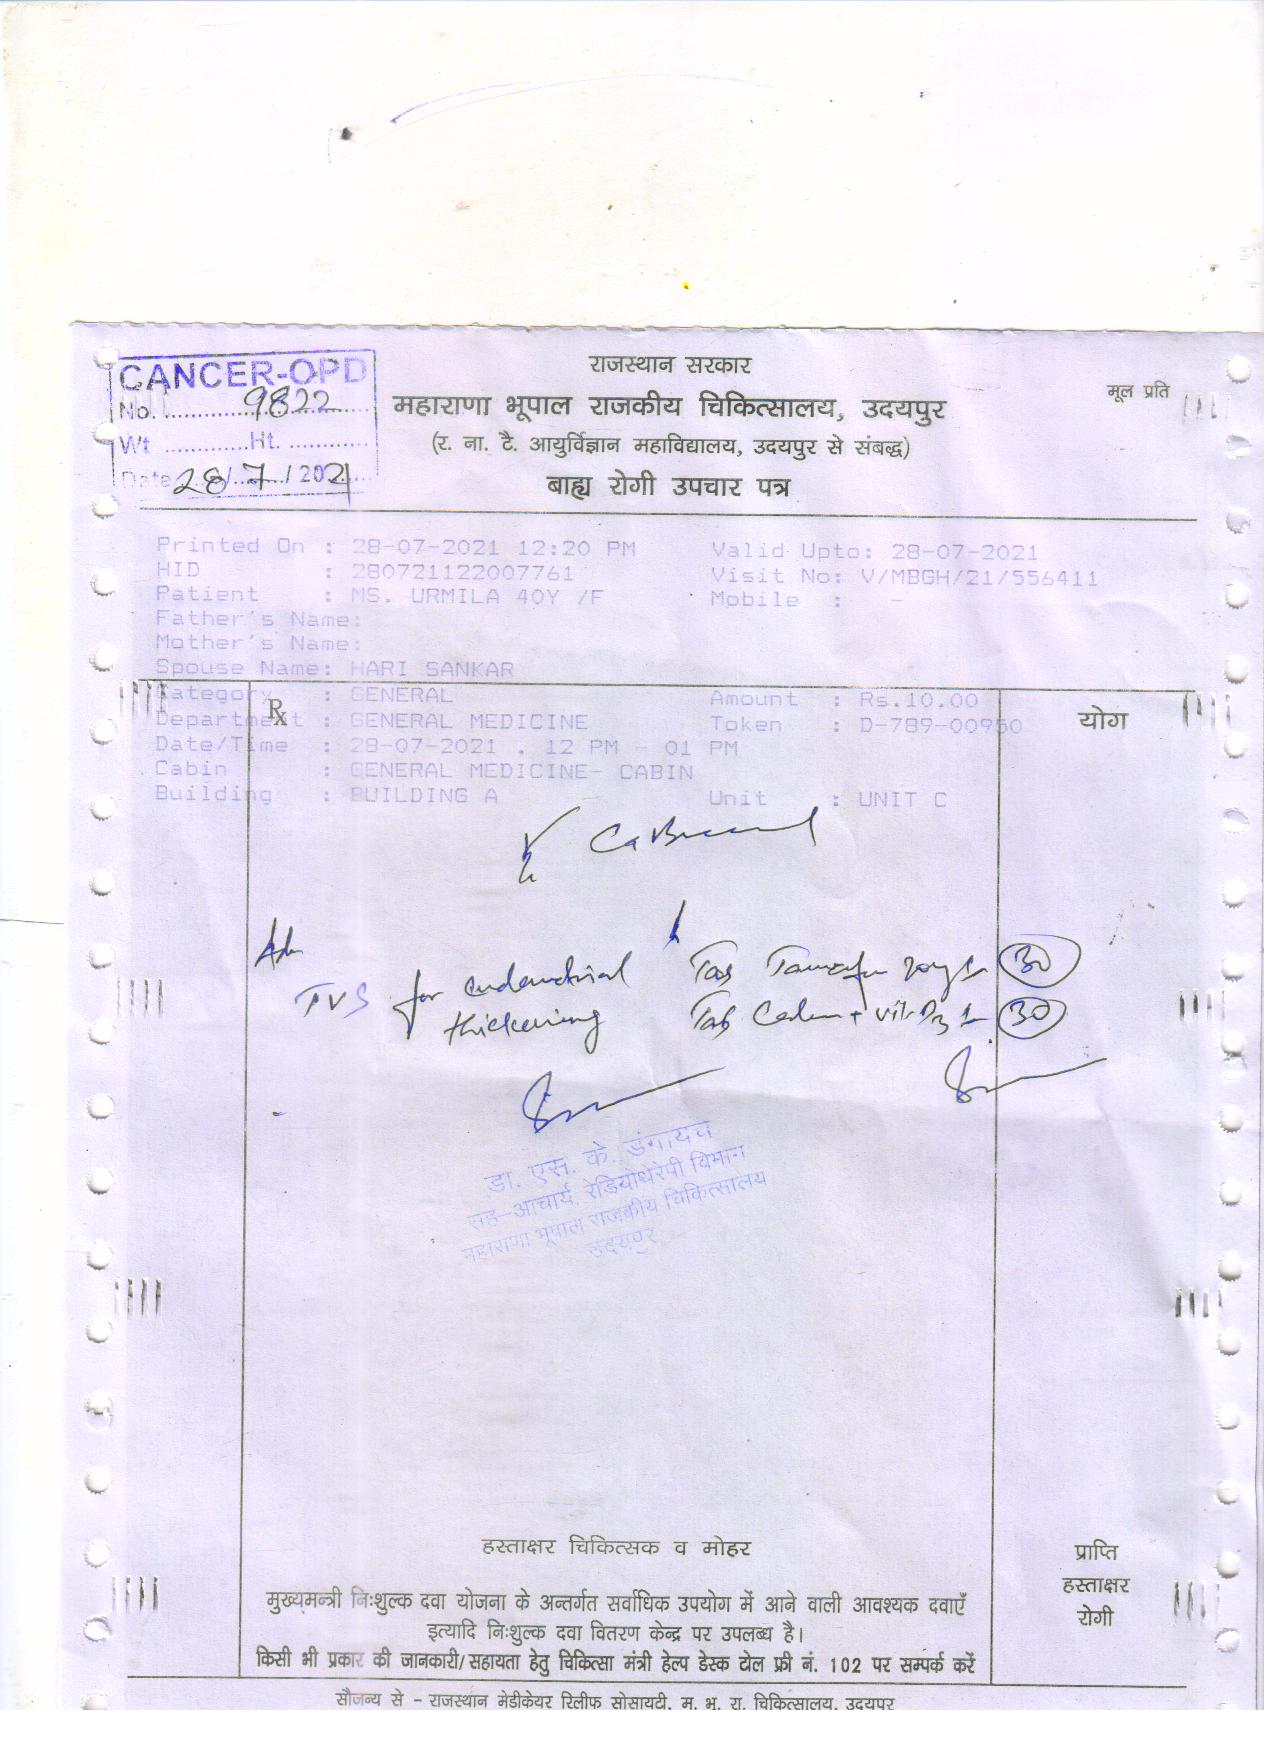 राजस्थान सरकार
मूल प्रति
CANCER-OPD
No. 9822
महाराणा भूपाल राजकीय चिकित्सालय, उदयपुर
Wt ............Ht. ............
(र. ना. टै. आयुर्विज्ञान महाविद्यालय, उदयपुर से संबद्ध)
Date 28/7/2021
बाह्य रोगी उपचार पत्र
Printed On : 28-07-2021 12:20 PM Valid Upto: 28-07-2021
HID : 280721122007761 Visit No: V/MBGH/21/556411
Patient : MS. URMILA 40Y /F Mobile : -
Father's Name:
Mother's Name:
Spouse Name: HARI SANKAR
Category : GENERAL Amount : Rs.10.00
℞ योग
Department : GENERAL MEDICINE Token : D-789-00950
Date/Time : 28-07-2021 . 12 PM - 01 PM
Cabin : GENERAL MEDICINE- CABIN
Building : BUILDING A Unit : UNIT C
Ca Breast
Adv
TVS for endometrial Tab 30
thickening Tab + vit D3 1 30
डा. एस. के. डंगायच
सह-आचार्य. रेडियोथेरेपी विभाग
महाराणा भूपाल राजकीय चिकित्सालय
उदयपुर
हस्ताक्षर चिकित्सक व मोहर
प्राप्ति
हस्ताक्षर
रोगी
मुख्यमन्त्री निःशुल्क दवा योजना के अन्तर्गत सर्वाधिक उपयोग में आने वाली आवश्यक दवाएँ
इत्यादि निःशुल्क दवा वितरण केन्द्र पर उपलब्ध है।
किसी भी प्रकार की जानकारी/सहायता हेतु चिकित्सा मंत्री हेल्प डेस्क टोल फ्री नं. 102 पर सम्पर्क करें
सौजन्य से - राजस्थान मेडीकेयर रिलीफ सोसायटी, म. भू. रा. चिकित्सालय, उदयपुर